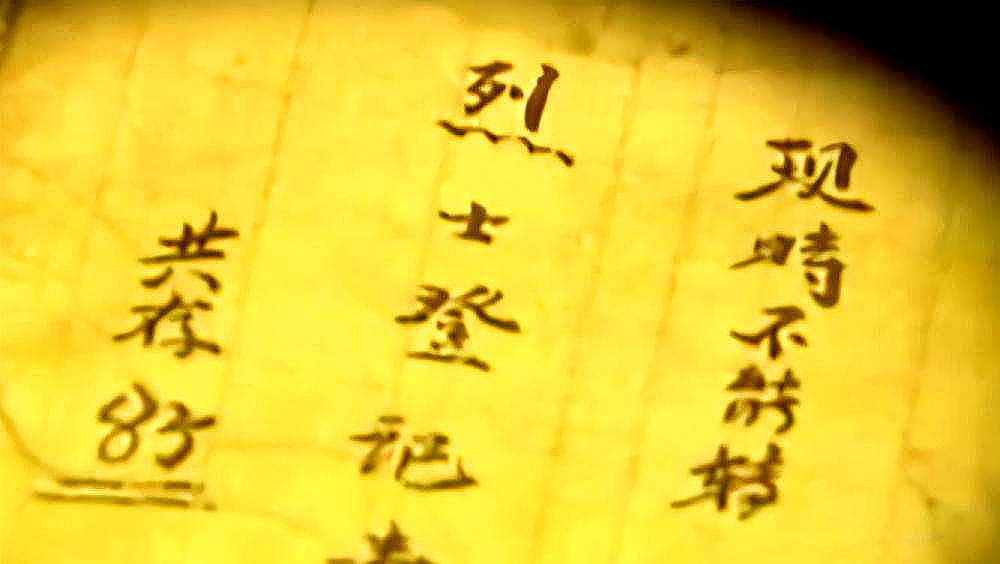 现時不能转
烈士登记表
共存85